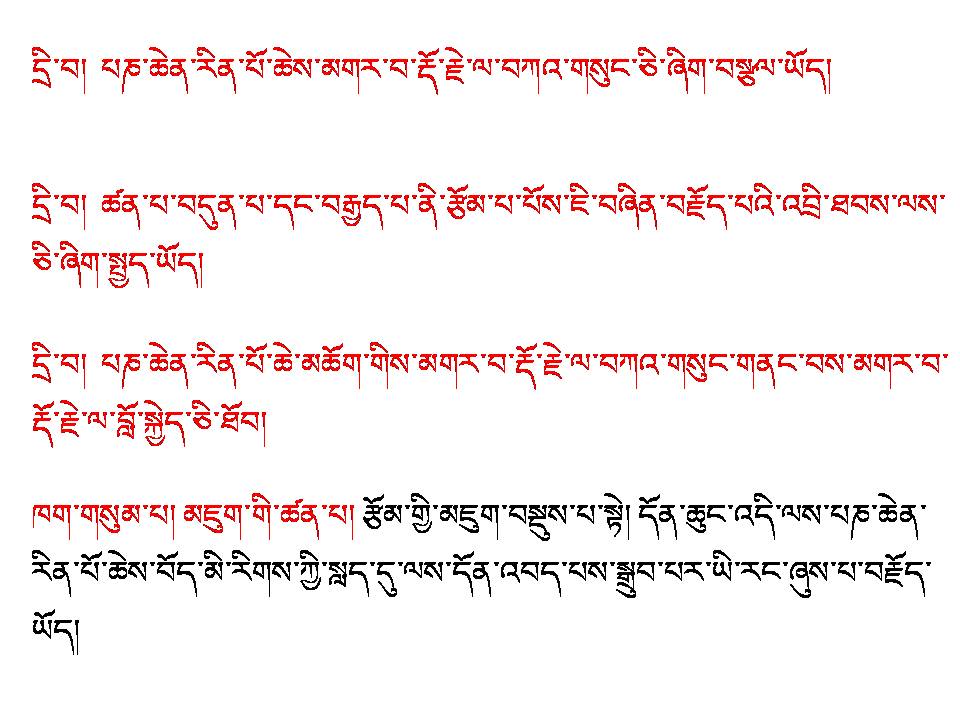 དྲི་བ། པཎ་ཆེན་རིན་པོ་ཆེས་མགར་བ་རྡོ་རྗེ་ལ་བཀའ་གསུང་ཅི་ཞིག་བསྩལ་ཡོད།
དྲི་བ། ཚན་པ་བདུན་པ་དང་བརྒྱད་པ་ནི་རྩོམ་པ་པོས་ཇི་བཞིན་བརྗོད་པའི་འབྲི་ཐབས་ལས་
ཅི་ཞིག་སྤྱད་ཡོད།
དྲི་བ། པཎ་ཆེན་རིན་པོ་ཆེ་མཆོག་གིས་མགར་བ་རྡོ་རྗེ་ལ་བཀའ་གསུང་གནང་བས་མགར་བ་
རྡོ་རྗེ་ལ་བློ་སྐྱེད་ཅི་ཐོབ།
ཁག་གསུམ་པ། མཇུག་གི་ཚན་པ། རྩོམ་གྱི་མཇུག་བསྡུས་པ་སྟེ། དོན་ཆུང་འདི་ལས་པཎ་ཆེན་
རིན་པོ་ཆེས་བོད་མི་རིགས་ཀྱི་སླད་དུ་ལས་དོན་འབད་པས་སྒྲུབ་པར་ཡི་རང་ཞུས་པ་བརྗོད་
ཡོད།